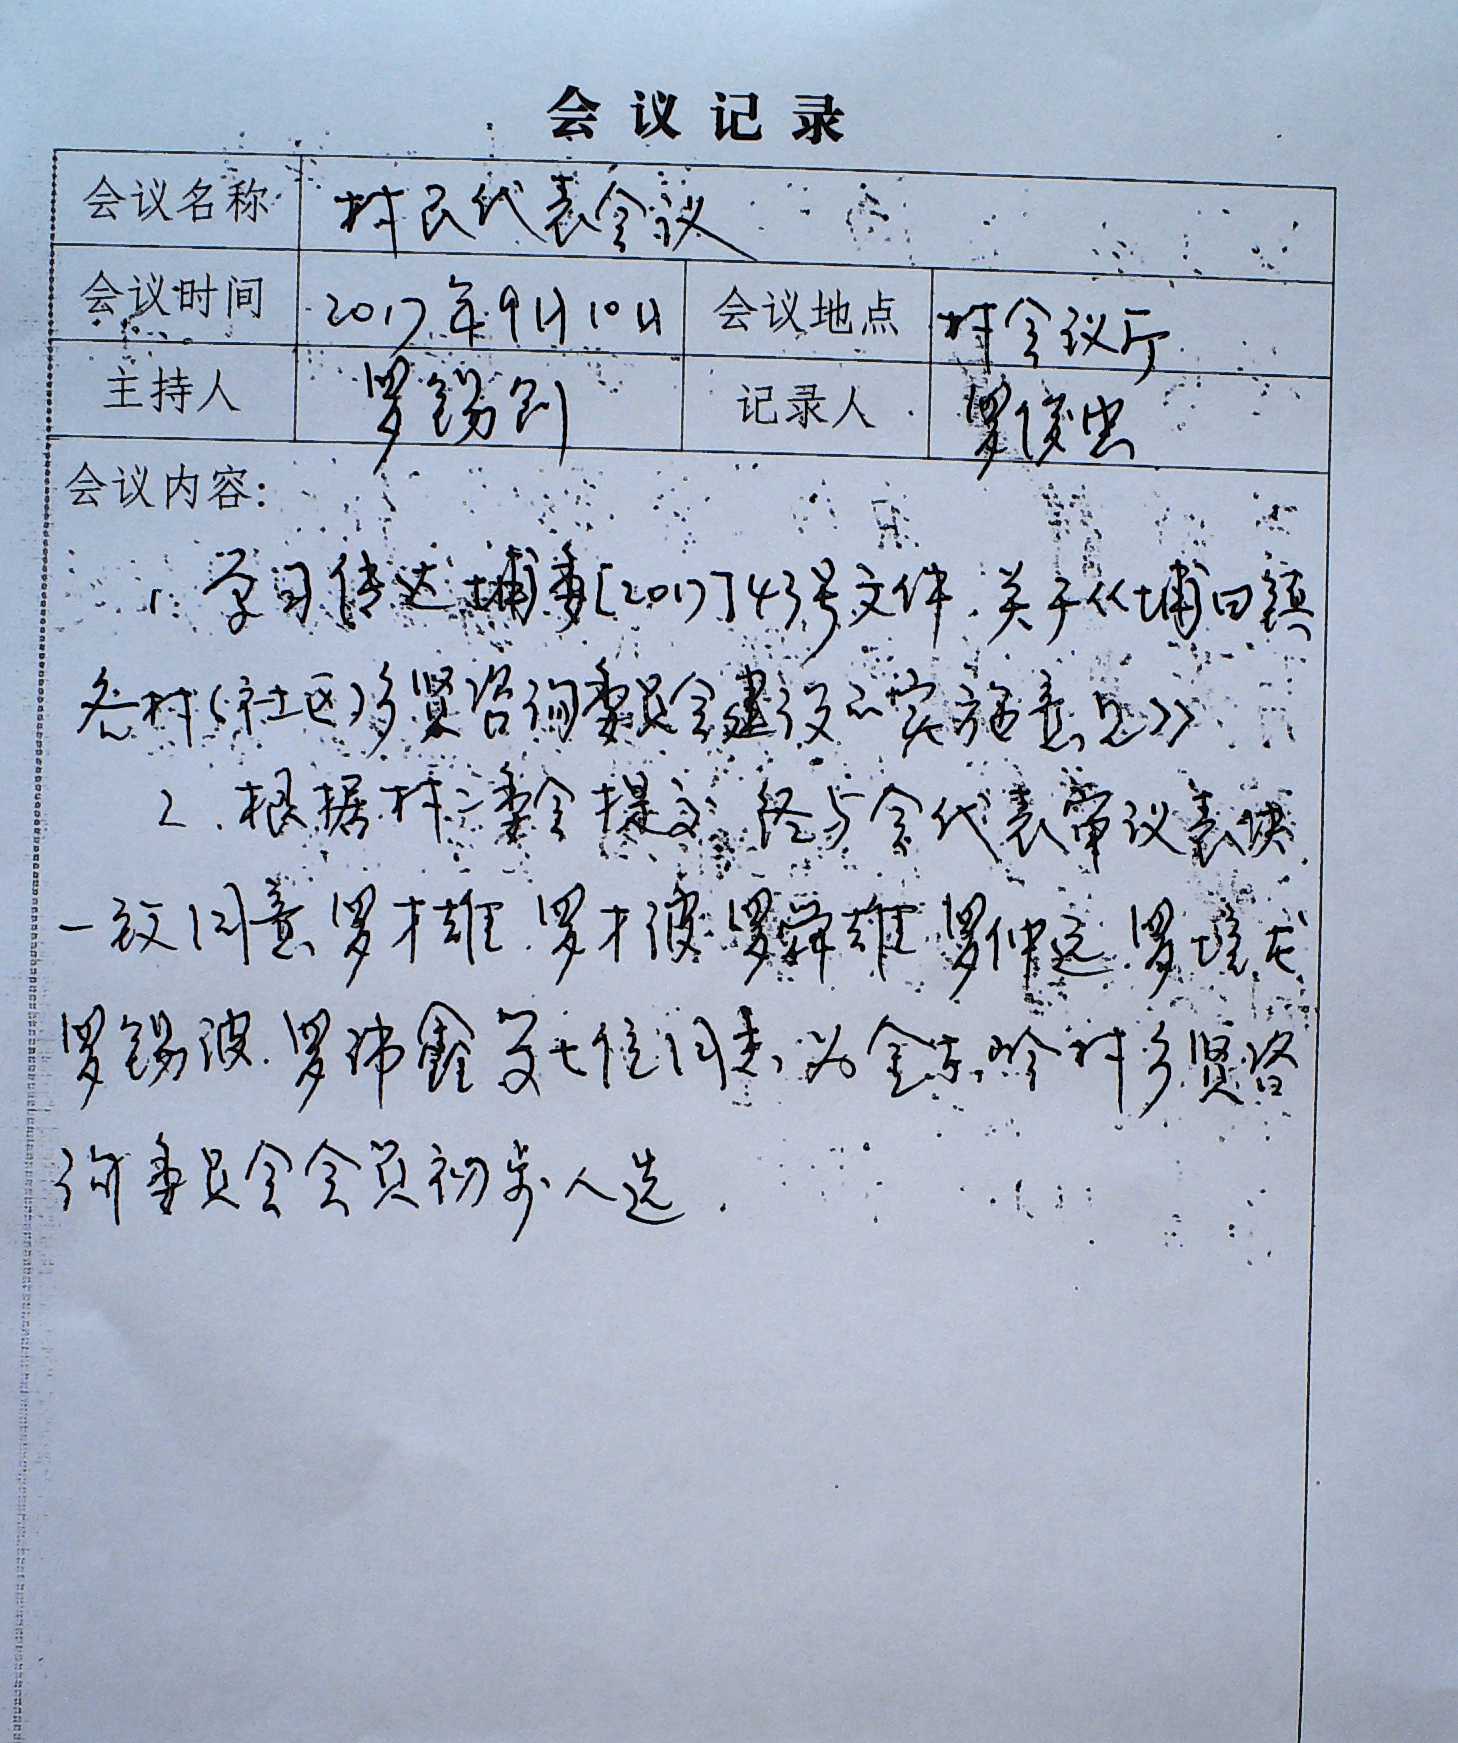 会议记录
会议名称 村民代表会议
会议时间 2017年9月10日 会议地点 村会议厅
主持人 罗锡创 记录人 罗俊忠
会议内容:
1. 学习传达埔委[2017]43号文件.关于《埔田镇
各村(社区)乡贤咨询委员会建设的实施意见》
2. 根据村二委会提议 经与会代表审议表决
一致同意罗才雄.罗才波.罗舜雄.罗仲远.罗境龙
罗锡波.罗沛鑫等七位同志为金东岭村乡贤咨
询委员会会员初步人选.